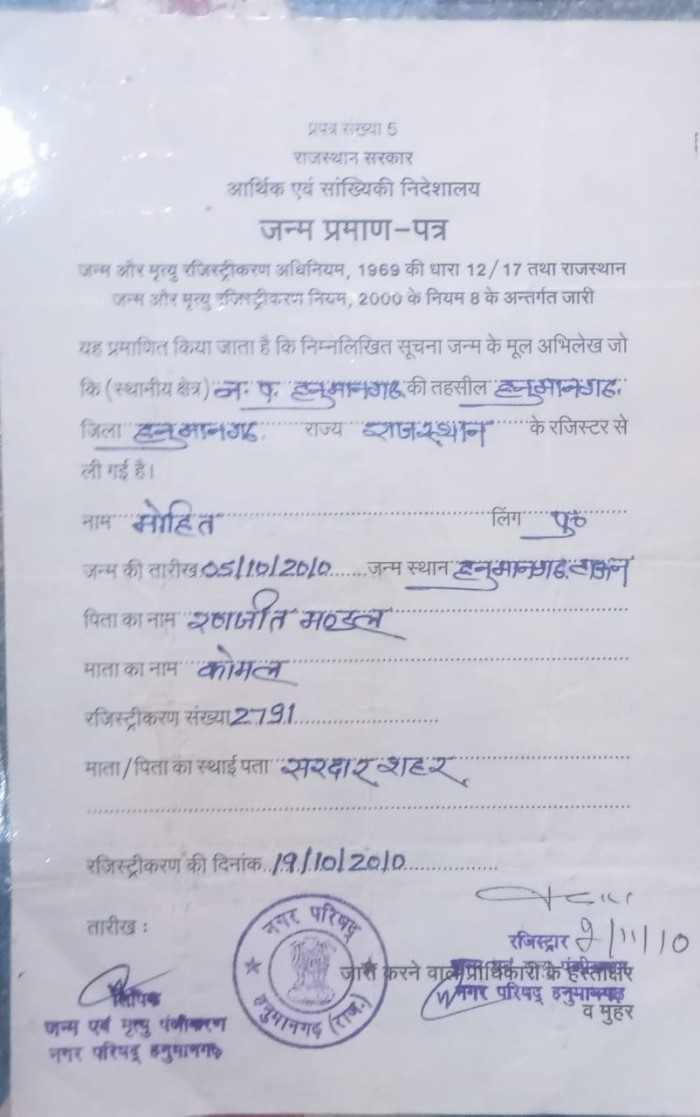 प्रपत्र संख्या 5
राजस्थान सरकार
आर्थिक एवं सांख्यिकी निदेशालय
जन्म प्रमाण-पत्र
जन्म और मृत्यु रजिस्ट्रीकरण अधिनियम, 1969 की धारा 12/17 तथा राजस्थान
जन्म और मृत्यु रजिस्ट्रीकरण नियम, 2000 के नियम 8 के अन्तर्गत जारी
यह प्रमाणित किया जाता है कि निम्नलिखित सूचना जन्म के मूल अभिलेख जो
कि (स्थानीय क्षेत्र) न. प. हनुमानगढ़ की तहसील हनुमानगढ़.
जिला हनुमानगढ़. राज्य राजस्थान के रजिस्टर से
ली गई है।
नाम मोहित लिंग पु०
जन्म की तारीख 05/10/2010 जन्म स्थान हनुमानगढ़ टाऊन
पिता का नाम रणजीत मण्डल
माता का नाम कोमल
रजिस्ट्रीकरण संख्या 2791
माता/पिता का स्थाई पता सरदार शहर
रजिस्ट्रीकरण की दिनांक 19/10/2010
तारीख :
नगर परिषद्
हनुमानगढ़ (राज.)
रजिस्ट्रार 9/11/10
जारी करने वाले प्राधिकारी के हस्ताक्षर
नगर परिषद् हनुमानगढ़
व मुहर
लिपिक
जन्म एवं मृत्यु पंजीकरण
नगर परिषद् हनुमानगढ़